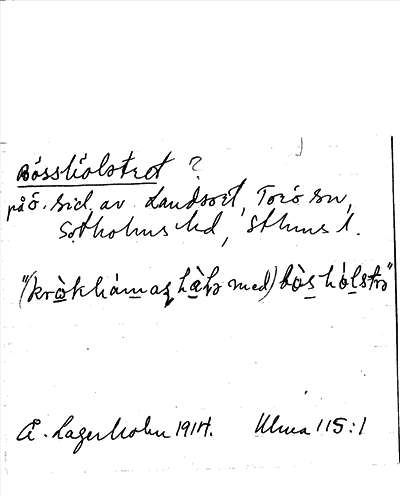 Bösshölstret ?
på ö. sid. av Landsort, Torö sn,
Sotholms hd, Sthms l.
"(kròkhámaɳ hàḷɔ med) bòs hólstrə"
Å. Lagerholm 1914. Ulma 115:1